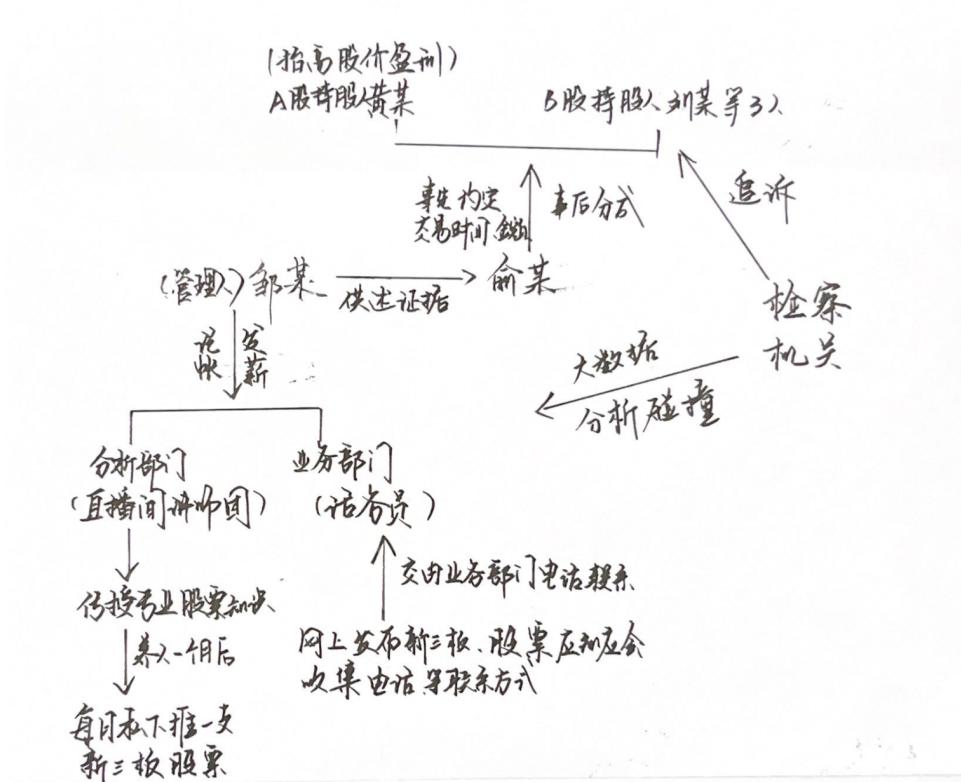 (抬高股价盈利)
A股持股人黄某
B股持股人刘某等3人
事先约定
交易时间、金额
事后分成
追诉
(管理人)邹某
供述证据
俞某
检察
机关
记帐
发薪
大数据
分析碰撞
分析部门
(直播间讲师团)
业务部门
(话务员)
交由业务部门电话联系
传授专业股票知识
养人一个月后
网上发布新三板、股票应知应会
收集电话等联系方式
每日私下推一支
新三板股票